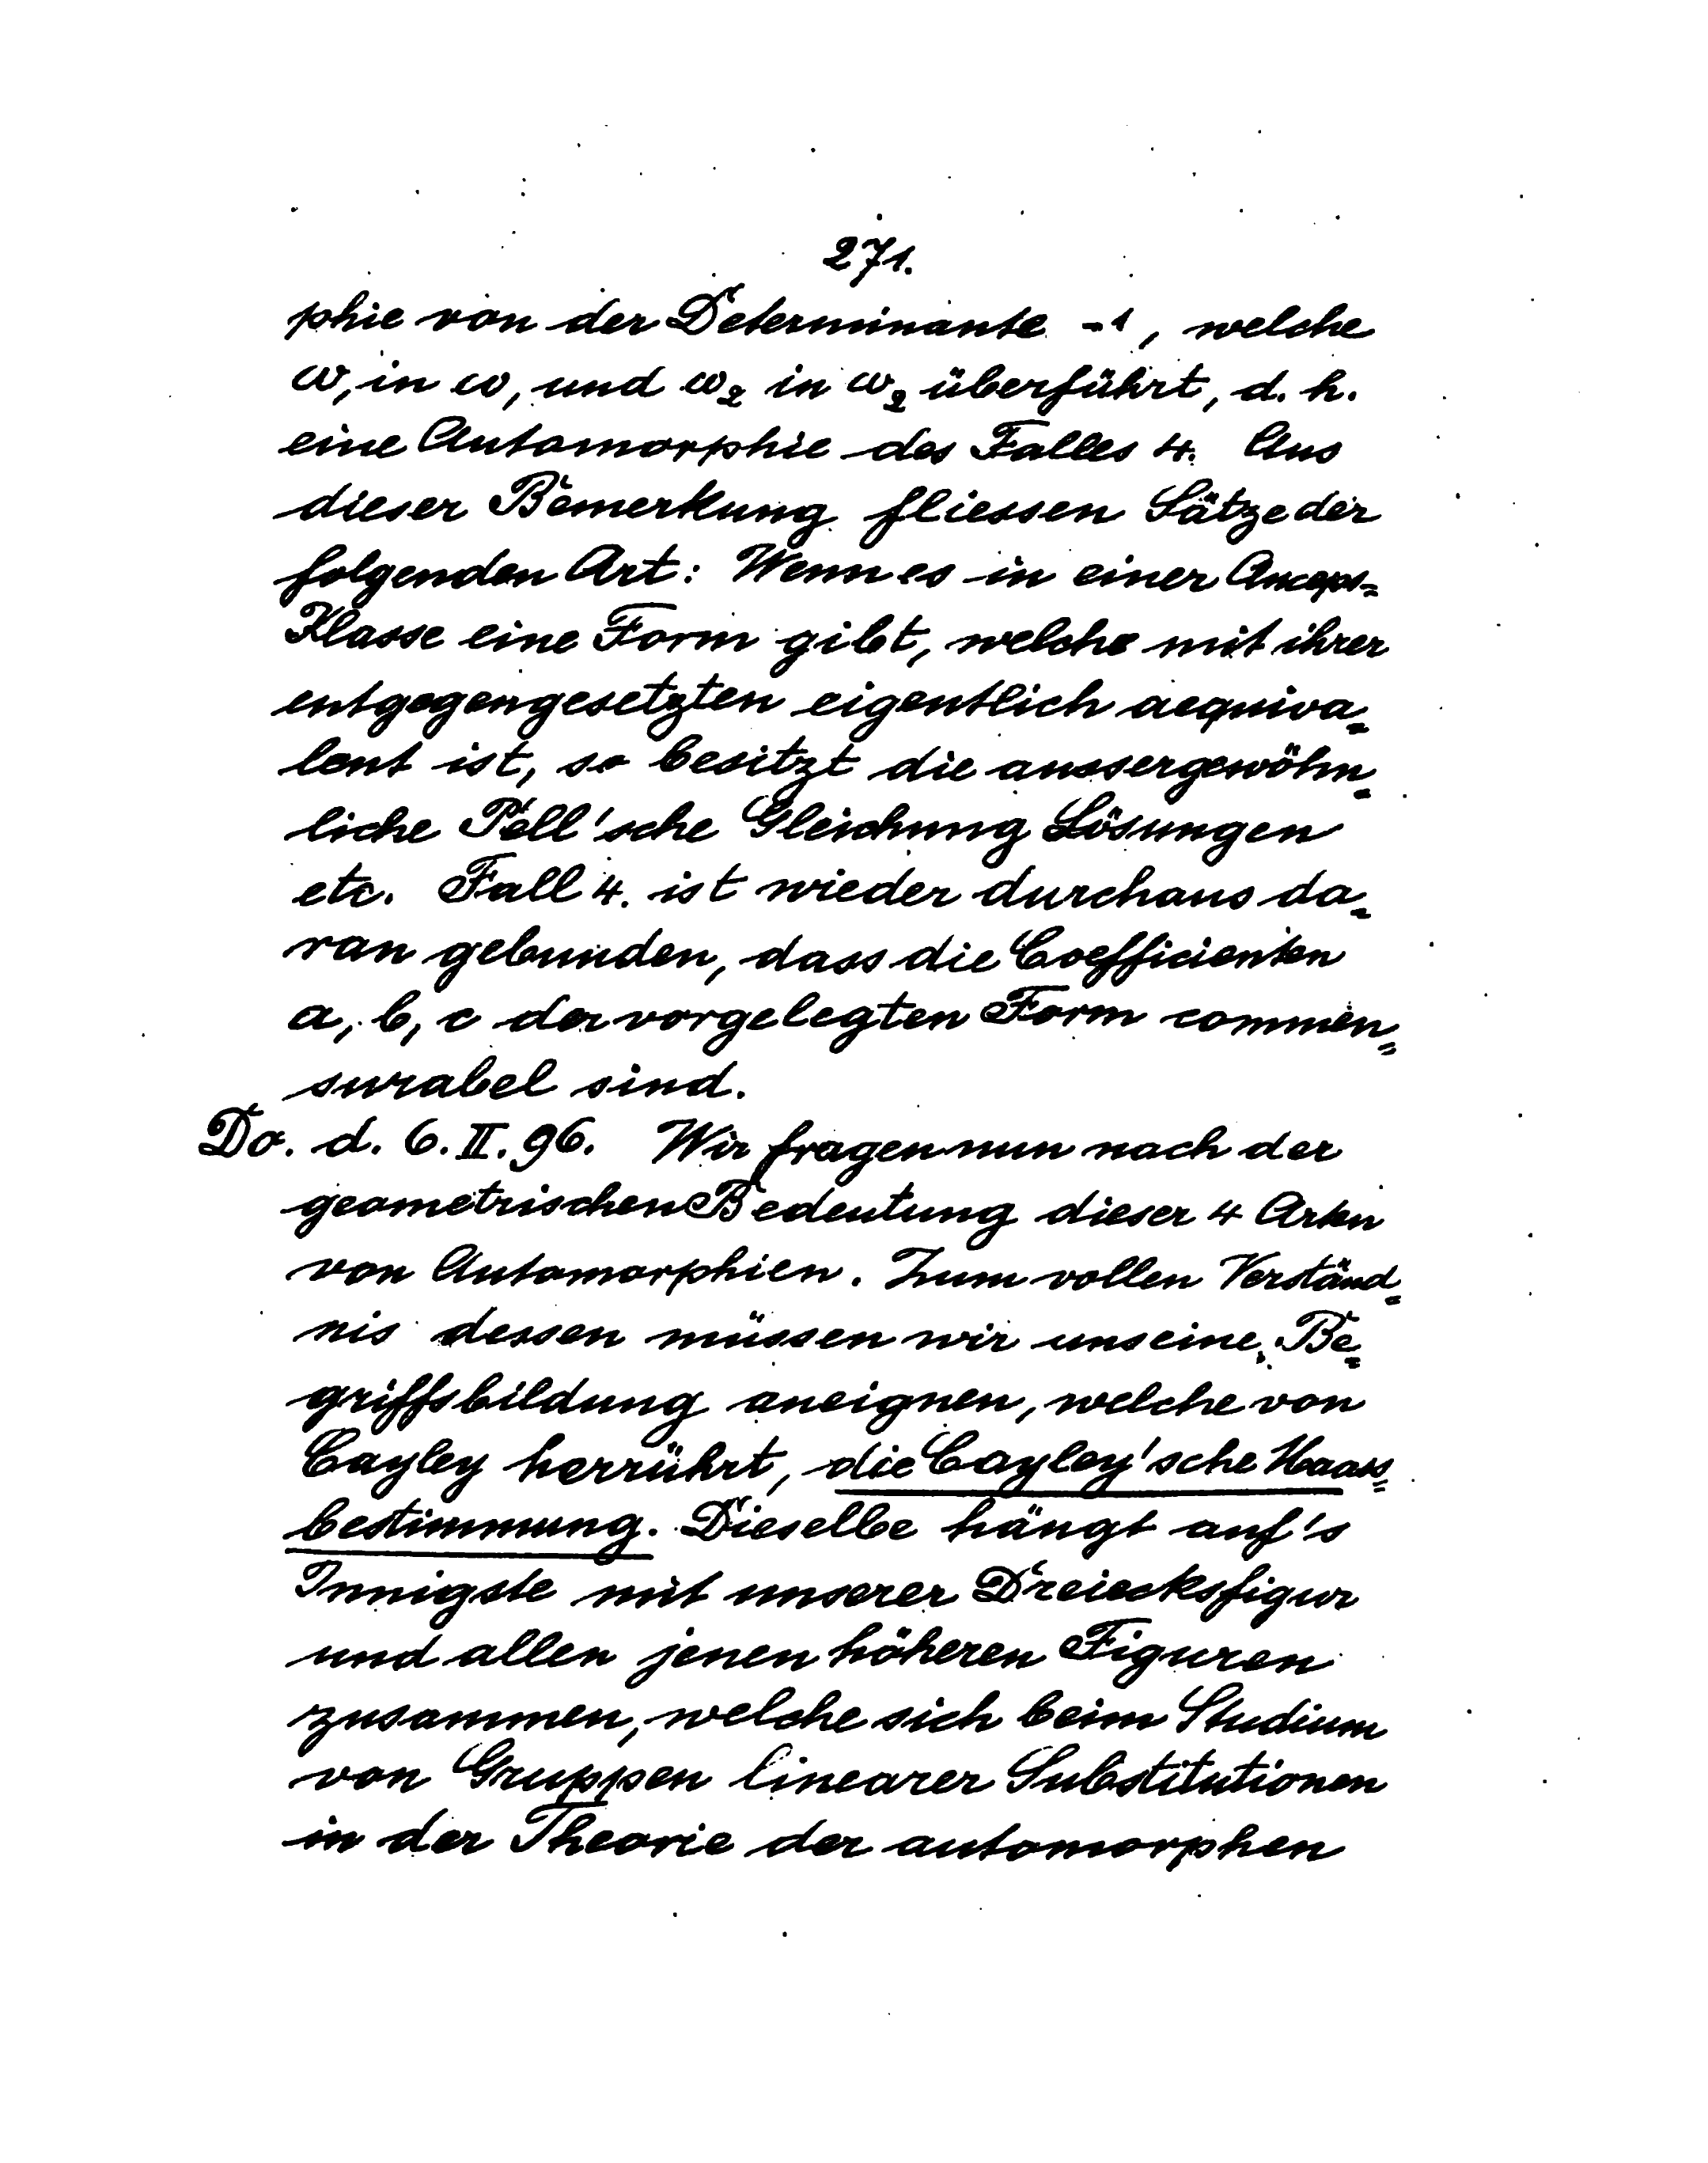 271.
phie von der Determinante -1, welche
ω, in ω, und ω₂ in ω₂ überführt, d. h.
eine Automorphie des Falles 4. Aus
dieser Bemerkung fliessen Sätze der
folgenden Art: Wenn es in einer Anceps=
Klasse eine Form gibt, welche mit ihrer
entgegengesetzten eigentlich aequiva=
lent ist, so besitzt die aussergewöhn=
liche Pell'sche Gleichung Lösungen
etc. Fall 4. ist wieder durchaus da=
ran gebunden, dass die Coefficienten
a, b, c der vorgelegten Form commen=
surabel sind.
Do. d. 6. II. 96. Wir fragen nun nach der
geometrischen Bedeutung dieser 4 Arten
von Automorphien. Zum vollen Verständ=
nis dessen müssen wir uns eine Be=
griffsbildung aneignen, welche von
Cayley herrührt, die Cayley'sche Maass=
bestimmung. Dieselbe hängt auf's
Innigste mit unserer Dreiecksfigur
und allen jenen höheren Figuren
zusammen, welche sich beim Studium
von Gruppen linearer Substitutionen
in der Theorie der automorphen